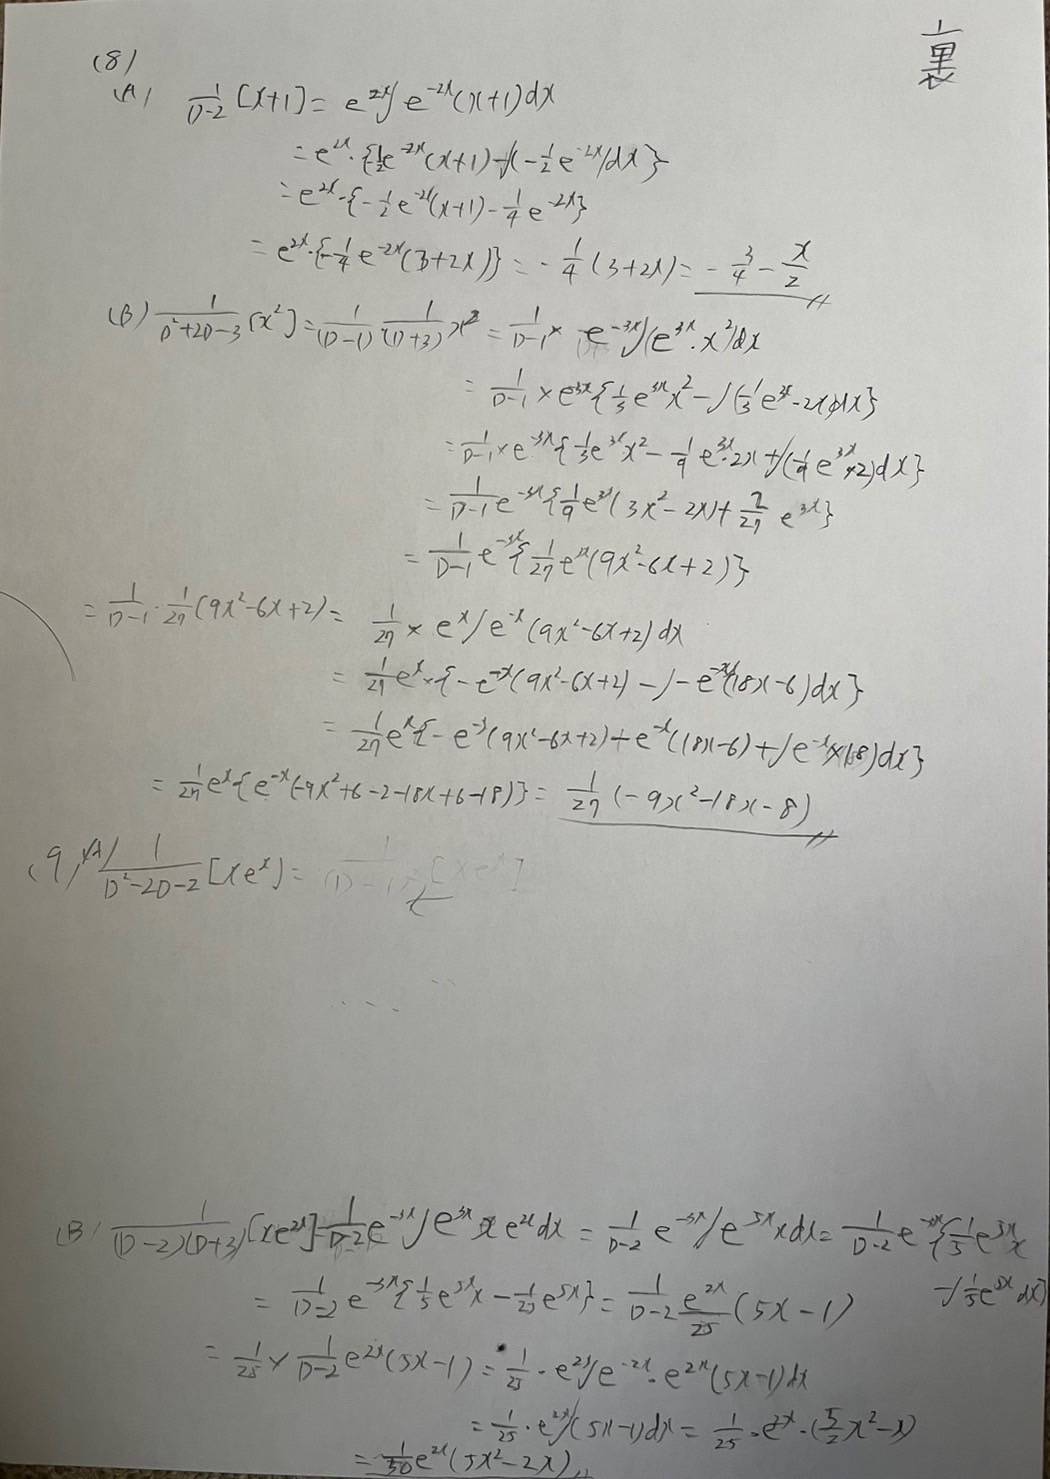 裏
(8)
(A) 1/(D-2) [x+1] = e^{2x}∫e^{-2x}(x+1)dx
= e^{2x}·{-1/2 e^{-2x}(x+1) - ∫(-1/2 e^{-2x})dx}
= e^{2x}·{-1/2 e^{-2x}(x+1) - 1/4 e^{-2x}}
= e^{2x}·{-1/4 e^{-2x}(3+2x)} = -1/4 (3+2x) = -3/4 - x/2
(B) 1/(D²+2D-3) [x²] = 1/(D-1) 1/(D+3) x² = 1/(D-1) × e^{-3x}∫(e^{3x}·x²)dx
= 1/(D-1) × e^{3x}{1/3 e^{3x}x² - ∫(1/3 e^{3x}·2x)dx}
= 1/(D-1) × e^{-3x}{1/3 e^{3x}x² - 1/9 e^{3x}·2x + ∫(1/9 e^{3x}×2)dx}
= 1/(D-1) e^{-3x}{1/9 e^{3x}(3x²-2x) + 2/27 e^{3x}}
= 1/(D-1) e^{-3x}{1/27 e^{3x}(9x²-6x+2)}
= 1/(D-1) · 1/27 (9x²-6x+2) = 1/27 × e^x∫e^{-x}(9x²-6x+2)dx
= 1/27 e^x×{-e^{-x}(9x²-6x+2) - ∫-e^{-x}(18x-6)dx}
= 1/27 e^x{-e^{-x}(9x²-6x+2) + e^{-x}(18x-6) + ∫e^{-x}×18)dx}
= 1/27 e^x{e^{-x}(-9x²+6-2-18x+6-18)} = 1/27 (-9x²-18x-8)
(9) (A) 1/(D²-2D-2) [xe^x] =
(B) 1/((D-2)(D+3)) [xe^{2x}] = 1/(D-2) e^{-3x}∫e^{3x} x e^{2x}dx = 1/(D-2) e^{-3x}∫e^{5x}xdx = 1/(D-2) e^{-3x}{1/5 e^{5x}x
-∫1/5 e^{5x}dx}
= 1/(D-2) e^{-3x}{1/5 e^{5x}x - 1/25 e^{5x}} = 1/(D-2) e^{2x}/25 (5x-1)
= 1/25 × 1/(D-2) e^{2x}(5x-1) = 1/25 · e^{2x}∫e^{-2x}·e^{2x}(5x-1)dx
= 1/25 · e^{2x}∫(5x-1)dx = 1/25 · e^{2x}·(5/2 x²-x)
= 1/50 e^{2x}(5x²-2x)